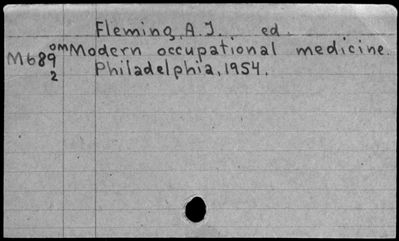 Fleming, A.J. ed.
M689 om Modern occupational medicine.
2 Philadelphia, 1954.